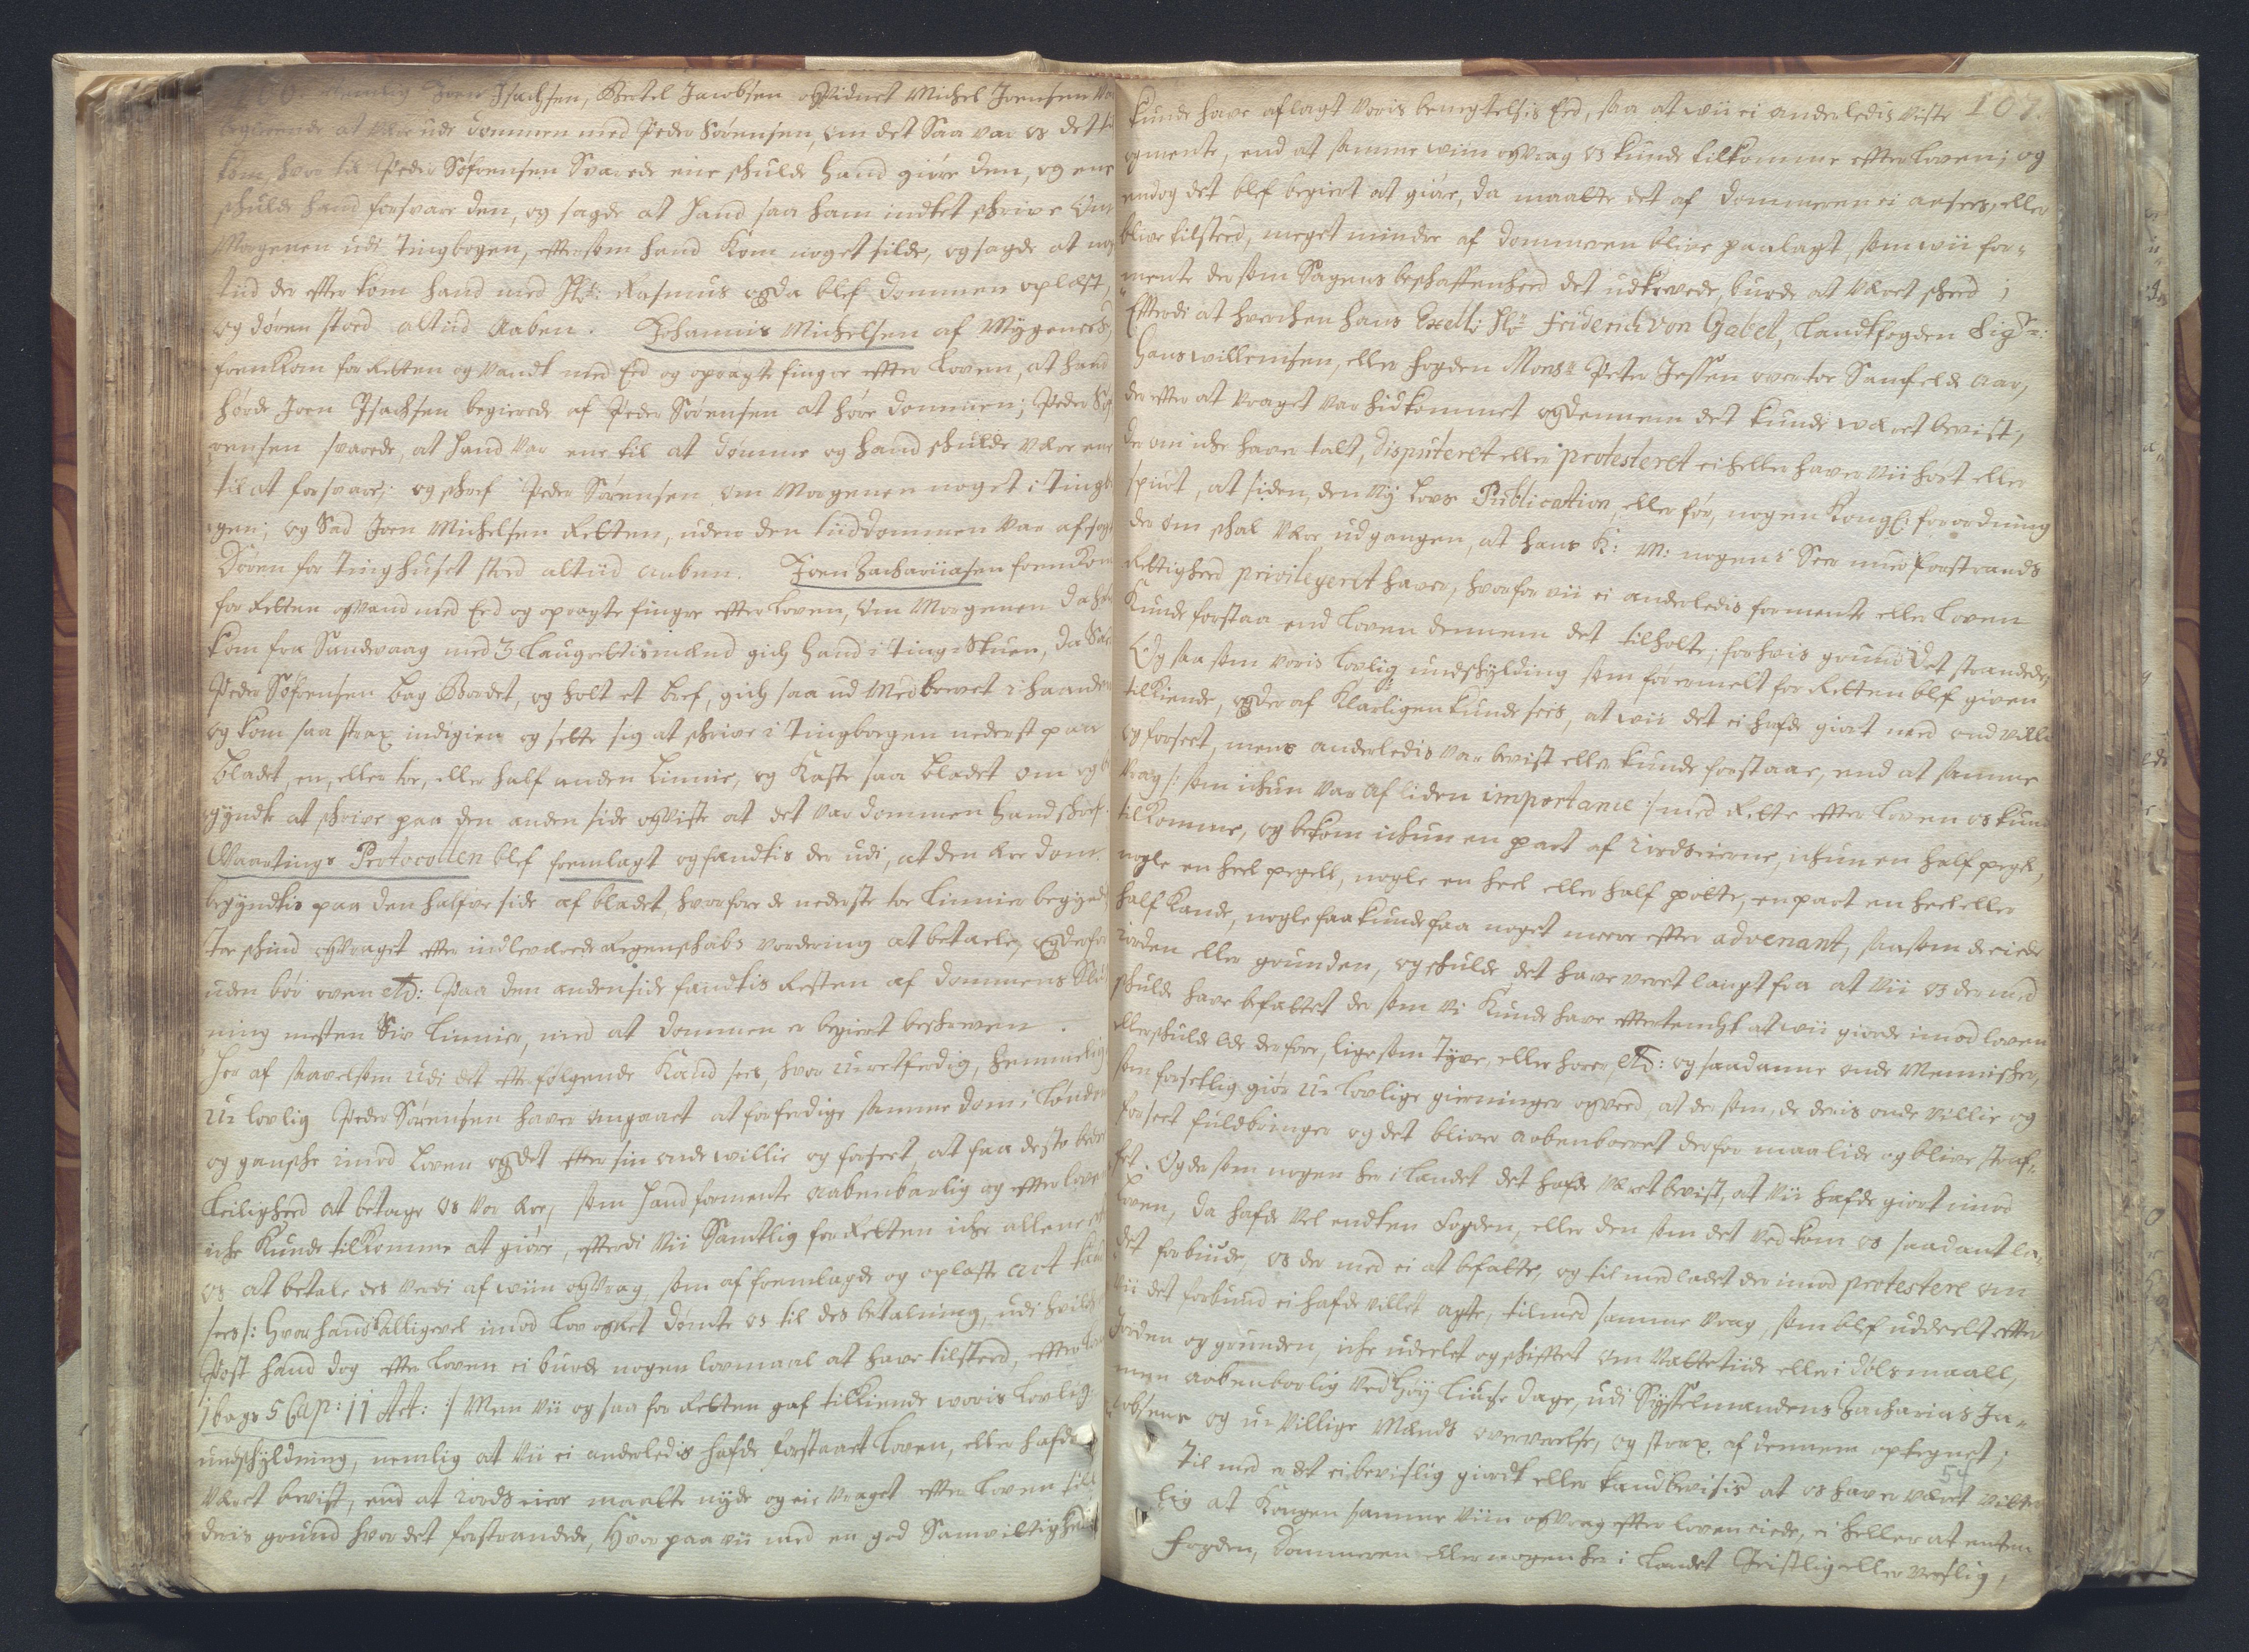 Joen Isachsen, Bertel Jacobsen og Vidnet Michel Joensen
begierende at vere udi dommen med Peder Sørensen, om det Saa var os det
kom, hvor til Peder Søfrensen Svarede ene schulde hand giøre den, og ene
schulde hand forsvare den, og sagde at hand saa ham indtet schrive Om
Morgenen udi Tingbogen, effter som hand kom noget silde, og sagde at nog
tiid der effter kom hand med Hr: Rasmus og da blef dommen oplæst,
og døren stoed altiid Aaben. Johannis Michelsen af Mygenes
fremkom for Retten og vandt med Eed og opragte fingre effter Loven, at hand
hørde Joen Isachsen begierede af Peder Sørensen at høre dommen; Peder Sø
rensen svarede, at hand var ene til at dømme og hand schulde være ene
til at forsvare; og schref Peder Sørensen om Morgenen noget i Tingb
gen; og Sad Joen Michelsen Retten, uden den tiid dommen var afsagt
Døren for Tinghuset stoed altiid aaben. Joen Zachariiasen fremkom
for Retten og Vand med Eed og opragte fingre effter Loven, Om Morgenen da hand
kom fra Sandevaag med 3 Laugrettismænd gich hand i Ting-Stuen, da Sad
Peder Søfrensen bag Bordet, og holt et bref, gich saa ud med brevet i haanden
og kom saa strax indigien og sette sig at schrive i Tingbogen nederst paa
bladet, en, eller toe, eller half anden Linnie, og kaste saa bladet om og be
gyndte at schrive paa den anden side og viste at det var dommen hand schref.
Waartings Protocollen blef fremlagt og fandtis der udi, at den ære dom
begyndtis paa den halfve side af bladet, hvorfore de nederste toe Linnier begynd
Toe schind og vraget effter indleverede Regenschabs vordering at betale, og derfor
uden bøe oven etc: Paa den anden side fandtis Resten af dommens Slut
ning mesten Siv Linnier, med at dommen er begiert beschreven.
Her af saavelsom udi det effterfølgende kand sees, hvor uretferdig, hemmelig
u-lovlig Peder Sørensen haver omgaaet at forferdige samme dom i Lønden
og gansche imod Loven og det effter sin onde willie og forsæt, at faa deste bedre
Leilighed at betage os vor ære, som hand formente aabenbarlig og effter loven
iche kunde tilkomme at giøre, efterdi Vii Samtlig for Retten iche allene
os at betale des verdi af wiin og vrag, som af fremlagde og oplæste act kand
sees /: hvor hand alligevel imod Lov og ret dømte os til des betalning, udi hvilchen
Post hand dog effter Loven ei burde nogen lovmaal at have tilsteed, effter lov
1 bogs 5 Cap: 11 Art: :/ Men vii og saa for Retten gaf tilkiende woris Lovlige
undschyldning, nemlig at vii ei anderledis hafde forstaaet Loven, eller hafde
været bevist, end at iords eiere maatte nyde og eie vraget effter Loven til
deris grund hvor det forstrandede, hvor paa vii med en god Samvittighed
107.
kunde have aflagt voris benegtelsis Eed, saa at wii ei anderledis viste
og mente, end at samme wiin og vrag os kunde tilkomme effter Loven; og
endog det blef begiert at giøre, da maatte det af Dommeren ei ansees, eller
blive tilsteed, meget mindre af dommeren blive paalagt, som wii for-
mente der som Sagens beschaffenhed det udkrevede, burde at været scheed;
Efterdi at hverchen hans Excell: Hr: Friderich von Gabel, Landfogden Sigr:
Hans Willemsen, eller fogden Monsr Peter Jessen over toe Samfelde aar,
der effter at vraget var hidkommet og dennem det kunde waret bevist,
der om iche haver talt, disputeret eller protesteret ei heller haver vii hørt eller
spurt, at siden den Ny Lovs Publication, eller før, nogen Kongl: forordning
der om schal være udgangen, at hans K: M: nogen i Seer med Forstrands
Rettighed privilegeret haver, hvorfor vii ei anderledis formente eller Loven
kunde forstaa end Loven dennem det tilholte, for hvis grund det strandede,
Og saa som voris Lovlig undschylding som før ermelt for Retten blef given
tilkiende, og der af klarligen kunde sees, at wii det ei hafde giort med ond villie
og forsæt, mens anderledis var bevist eller kunde forstaae, end at samme
vrag /: som ichun var af liden importance :/ med Rette effter Loven os kunde
tilkomme, og bekom ichun en part af iordseierne, ichun en half pegel,
nogle en heel pegell, nogle en heel eller half potte, en part en heel eller
half kande, nogle faa kunde faa noget meere effter advenant, saasom de eiede
iorden eller grunden, og schulde det have veret langt fra at vii os der med
schulde have befattet der som vi kunde have effter tencht at wii giorde imod loven
eller schulde lide derfore, lige som Tyve, eller horer, etc: og saadanne onde Mennischer,
som forsetlig giør u-lovlige gierninger og veed, at der som de deris onde villie og
forsæt fuldbringer og det bliver aabenbaret derfor maa lide og blive straf-
fet. Og der som nogen her i Landet det hafde været bevist, at vii hafde giort imod
Loven, da hafde vel endten Fogden, eller den som det vedkom os saadant la-
det forbiude, os der med ei at befatte, og til med ladet der imod protestere om
vii det forbund ei hafde villet agte, tilmed samme vrag, som blef uddeelt effter
Jorden og grunden, iche udeelet og schifftet om Nattetiide eller i dølsmaall,
men aabenbarlig ved høy liuse dage, udi Sysselmandens Zacharias Ja-
cobsens og u-villige Mænds oververelse, og strax af dennem optegnet;
Til med er det ei bevislig giordt eller kand bevisis at os haver været vitter
lig at Kongen samme viin og vrag effter loven eiede, ei heller at enten
Fogden, Dommeren eller nogen her i Landet Geistlig eller verslig,
54